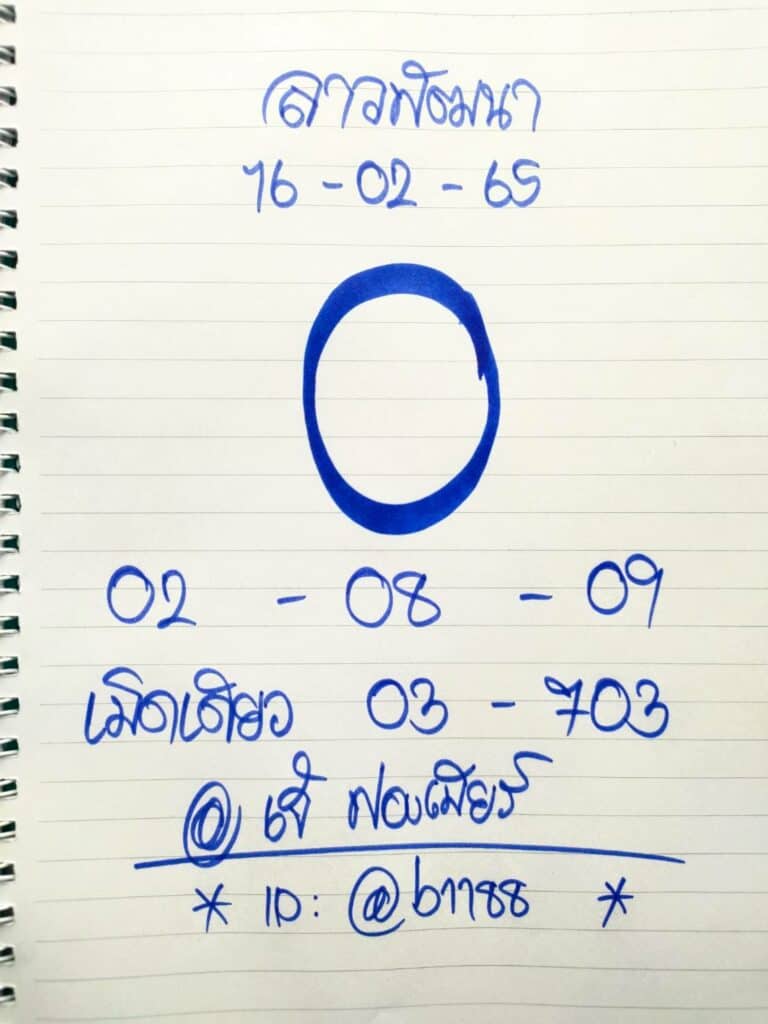 ลาวพัฒนา
16 - 02 - 65
0
02 - 08 - 09
เม็ดเดียว 03 - 703
@ เจ๊ ฟองเบียร์
* ID: @b1188 *